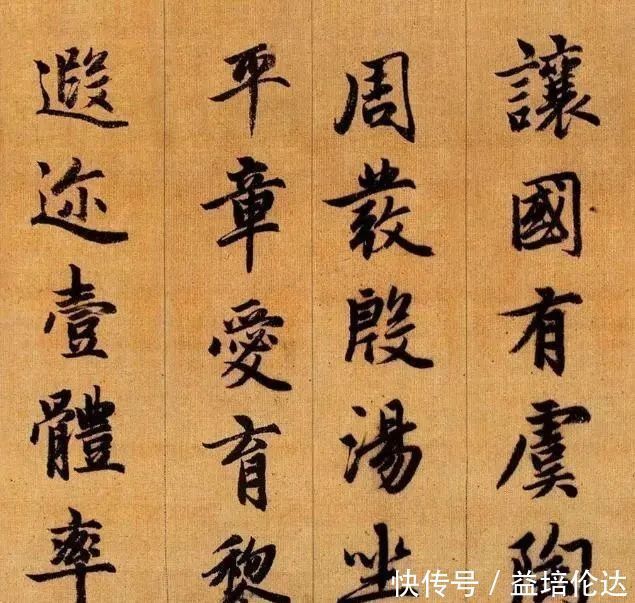 讓國有虞陶
周發殷湯坐
平章愛育黎
遐迩壹體率
快传号/益培伦达